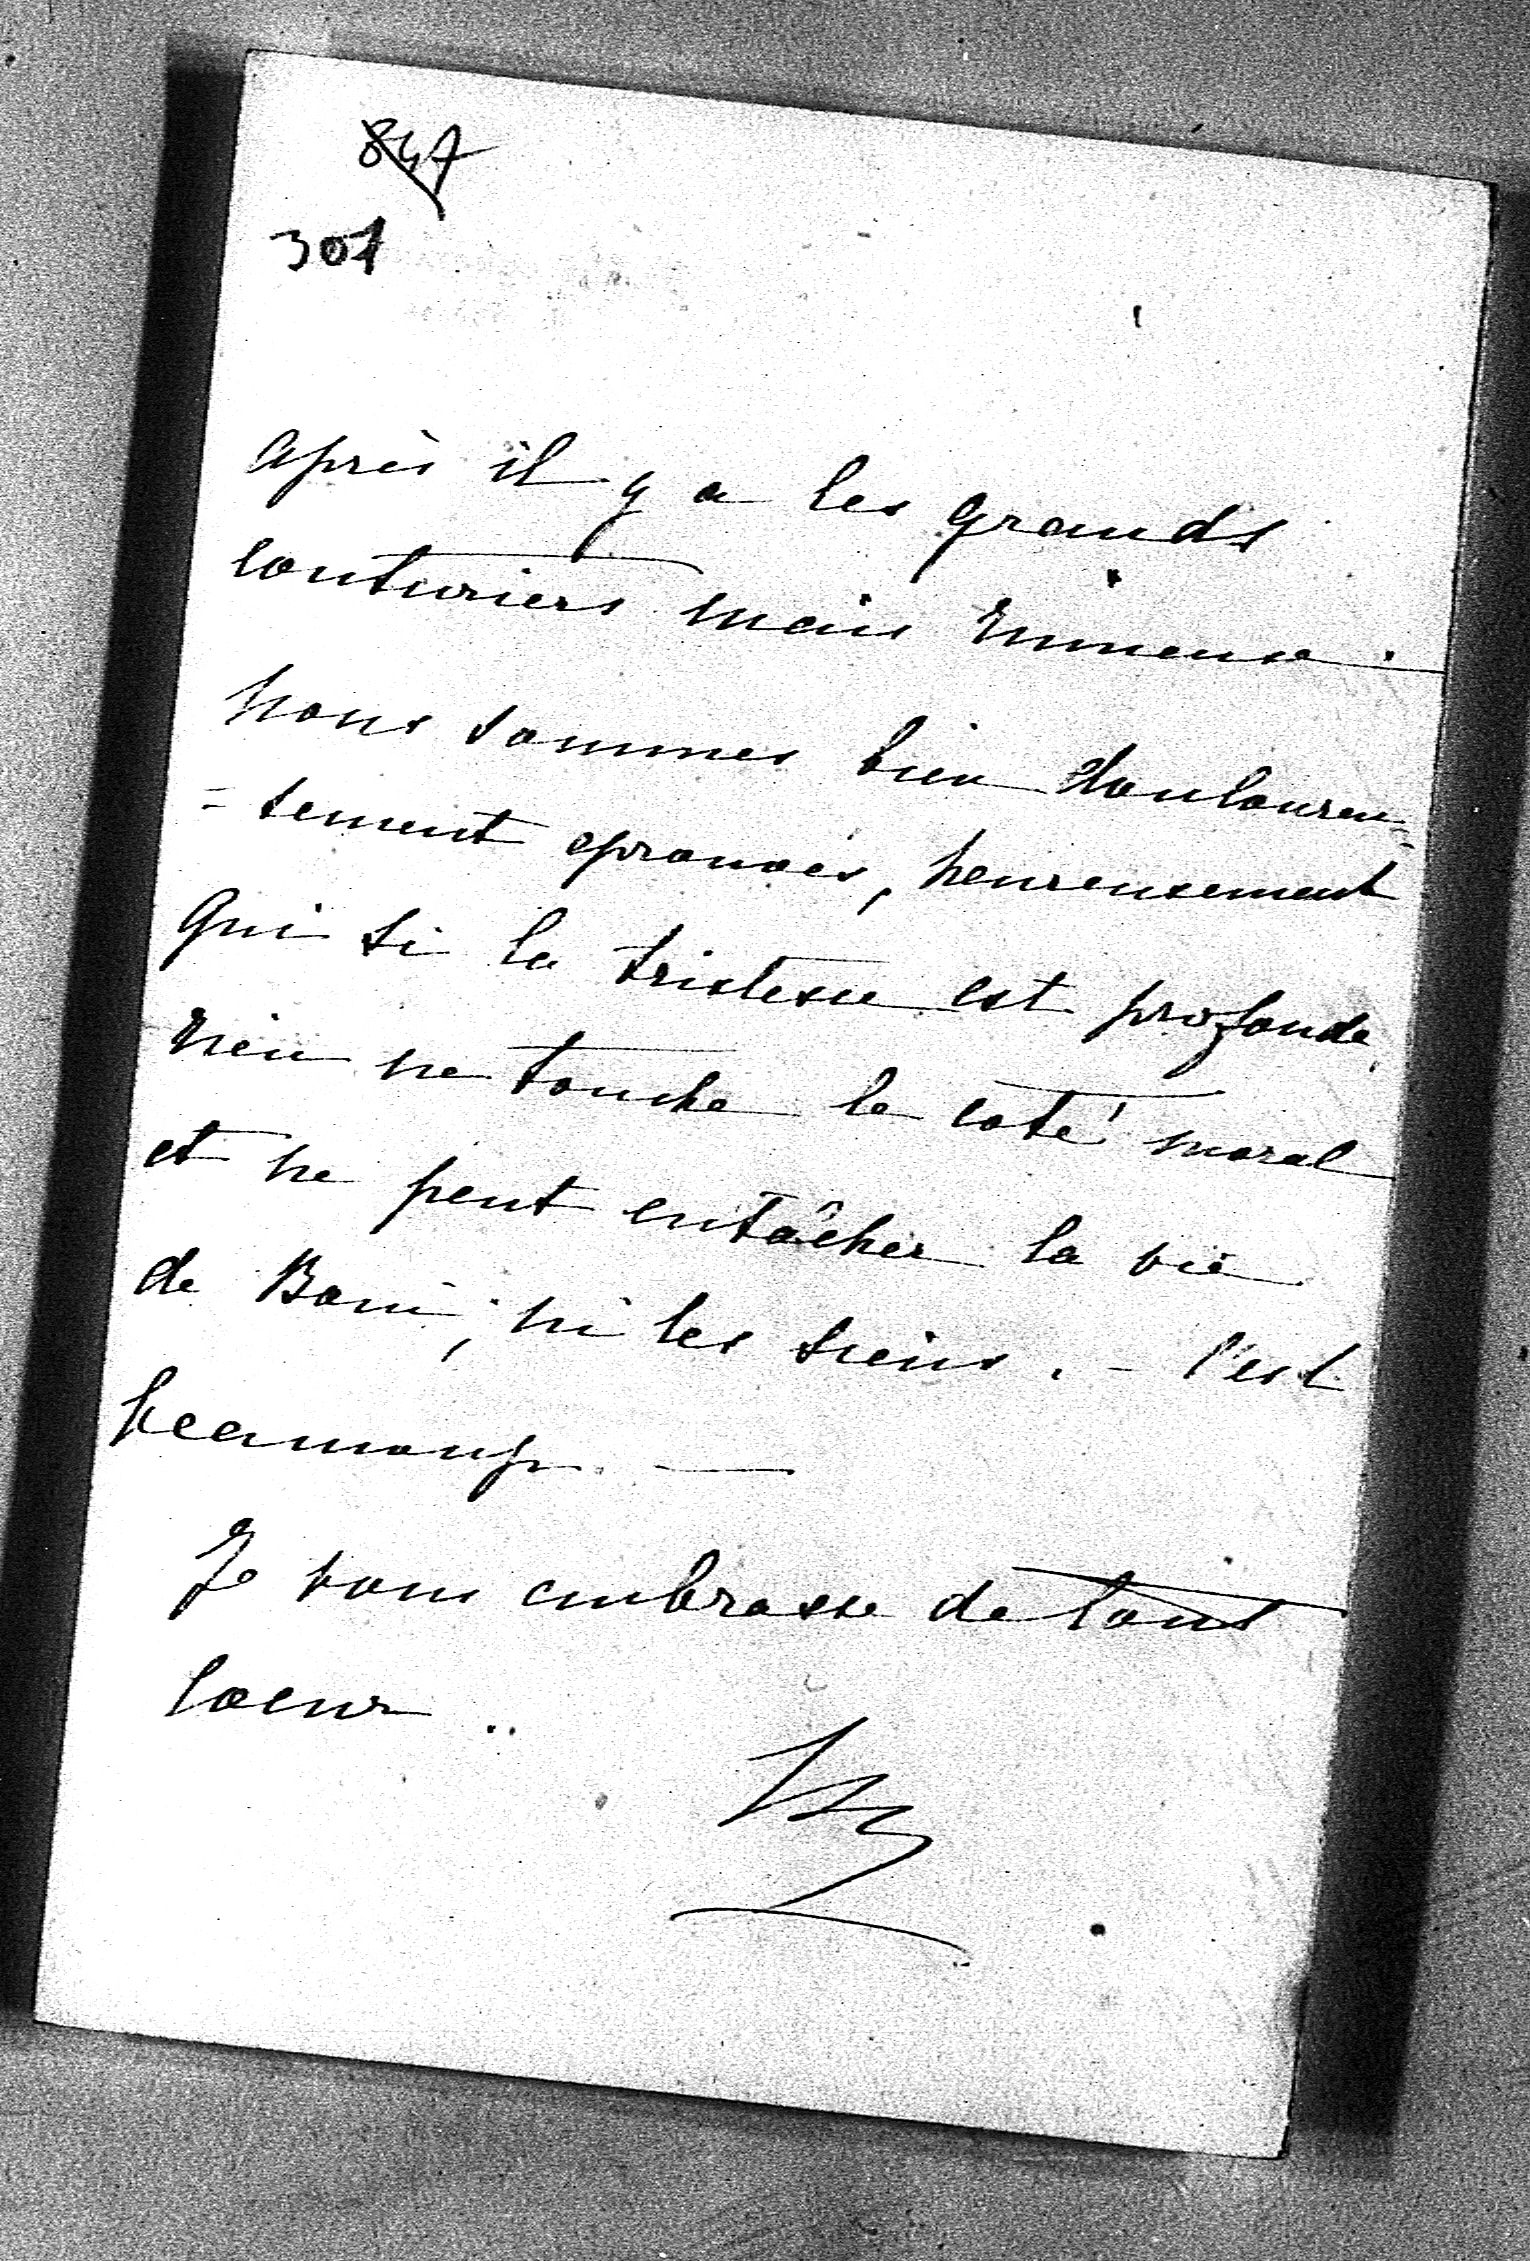 847
307
après il y a les grands
couturiers mais ruineux.
Nous sommes bien douloureu=
=sement eprouvés, heureusement
qui si la tristesse est profonde,
rien ne touche le coté moral
et ne peut entâcher la vie
de Boni, ni les siens. - C'est
beaucoup. —
Je vous embrasse de tout
Coeur..